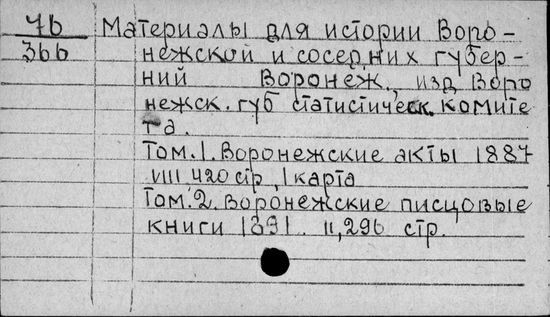 7б
366
Материалы для истории Воро-
нежской и соседних губер-
ний Воронеж., изд Воро
нежск. губ статистическ. комите
та.
Том. 1. Воронежские акты 1887
VIII, 420 стр, 1 карта
Том. 2. Воронежские писцовые
книги 1891. II, 296 стр.